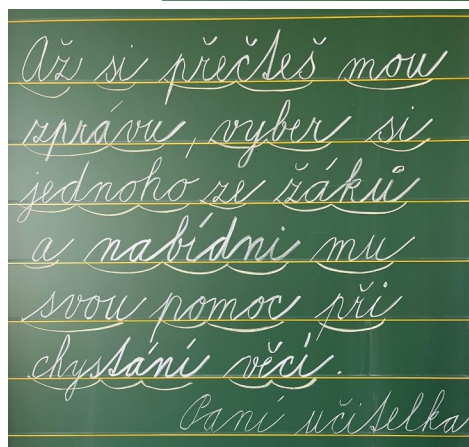 Až si přečteš mou
zprávu, vyber si
jednoho ze žáků
a nabídni mu
svou pomoc při
chystání věcí.
Paní učitelka